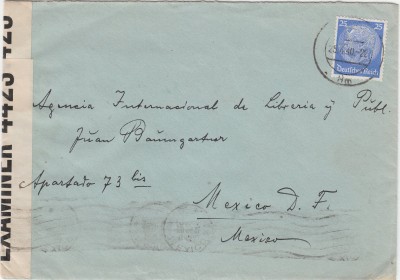 EXAMINER 4423
25 25
Deutsches Reich
Agencia Internacional de Libreria y Publ.
Juan Baumgartner
Apartado 73 bis
Mexico D. F.
Mexiko